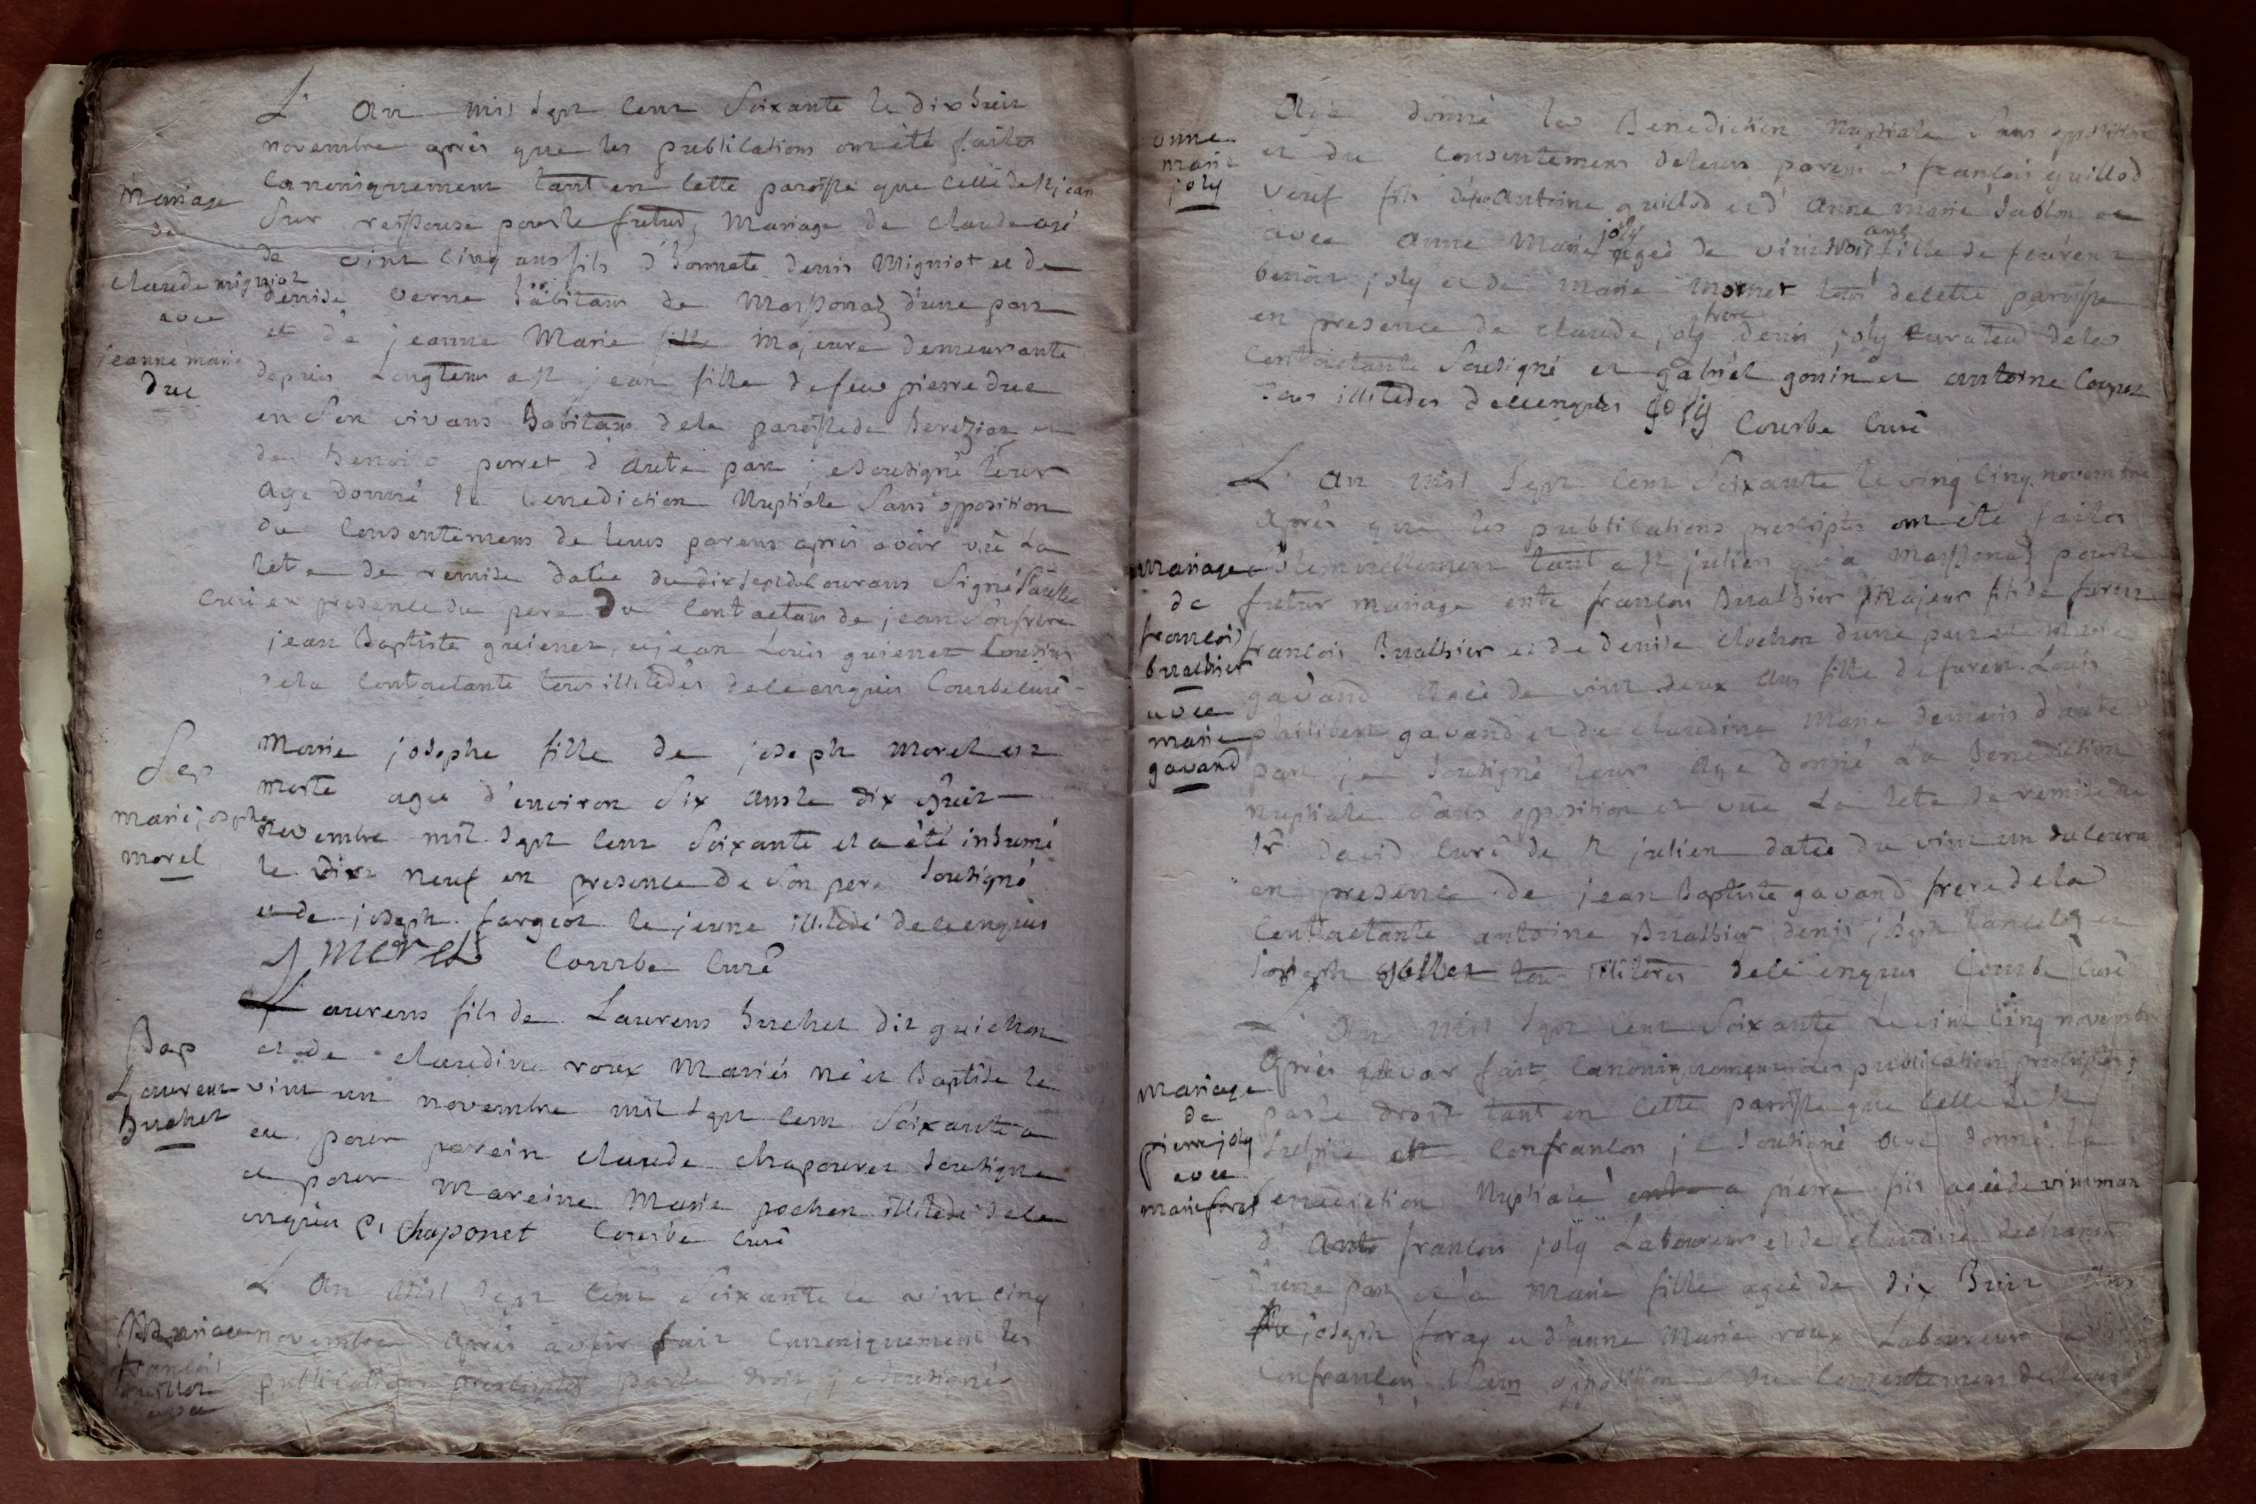 Mariage
de
claude migniot
avec
jeanne marie
duc
L'an mil sept cent Soixante le dix huit
novembre après que les publications ont été faites
canoniquement tant en cette paroisse que celle de st jean
Sur reissouse pour le futur Mariage de claude agé
de vint cinq ans fils d'honnete denis Migniot et de
denise verne habitans de Massonaz d'une part
et de jeanne Marie fille Majeure demeurante
depuis Longtems a st jean fille de feu pierre duc
en Son vivant habitant de la paroisse de Bereziat et
de Benoite perret d'autre part je Sousigné leur
ay donné la benediction Nuptiale Sans opposition
du Consentement de leurs parens après avoir vüe La
lettre de remise datée du dix sept du courant Signé
Curé en presence du pere du Contractant de jean Son frere
jean Baptiste guienet, et jean Louis guienet Cousins
de la Contractante tous illiterés de ce enquis Courbe curé
Sep
marie josephe
morel
Marie josephe fille de joseph morel est
morte agée d'environ Six ans le dix huit
novembre mil sept cent Soixante et a été inhumé
le dix neuf en presence de Son pere Sousigné
et de joseph fargeot le jeune illiteré de ce enquis
J morel Courbe Curé
Bap
Laurent
Buchet
Laurens fils de Laurens buchet dit guichon
et de claudine roux Mariés né et Baptisé le
vint un novembre mil sept cent Soixante a
eu pour parein claude chapounet Sousigné
et pour Mareine Marie pochon illiteré de ce
enquis C chaponet Courbe curé
Mariage
françois
guillot
avec
L'an Mil Sept Cent Soixante le vint cinq
novembre après avoir fait Canoniquement les
publications prescriptes par le droit je Sousigné
anne
marie
joly
Aye donné la Benediction Nuptiale Sans opposition
et du Consentement de leurs parens a françois guillod
veuf fils de feu Antoine guillod et d'Anne marie Sublon et
avec Anne Marie joly agée de vint trois ans fille de feu
benoit joly et de Marie Mornet tous de cette paroisse
en presence de claude joly frere denis joly Curateur de la
Contractante Sousigné et gabriel gonin et antoine Coupet
tous illiterés de ce enquis joly Courbe Curé
Mariage
de
françois
bualhier
avec
marie
gavand
L'an Mil Sept Cent Soixante le vint cinq novembre
Après que les publications prescriptes ont été faites
Solemnellement tant a st julien qu'a Massonaz pour le
futur mariage entre françois Bualhier Majeur fils de
françois Bualhier et de denise clochon d'une part et Marie
gavand Agée de vint deux Ans fille de Louis
philibert gavand et de claudine Marie d'autre
part je Sousigné leur Aye donné La Benediction
Nuptiale Sans opposition et vüe La lettre de remise de
Mr david Curé de St julien datée du vint un du courant
en presence de jean Baptiste gavand frere de la
Contractante antoine Bualhier denis joseph et
joseph tous illiterés de ce enquis Courbe Curé
Mariage
de
pierre joly
avec
marie foraz
L'An Mil Sept Cent Soixante Le vint Cinq novembre
Après avoir fait Canoniquement les publications prescriptes
par le droit tant en Cette paroisse que Celle de St
Sulpice et Confrancon je Sousigné Aye donné la
Benediction Nuptiale a pierre fils agé de vint
d' françois joly Laboureur et de claudine
d'une part et a Marie fille agée de dix huit Ans
de joseph foraz et d'anne Marie roux Laboureurs a
Confrancon Sans opposition et du Consentement de leurs